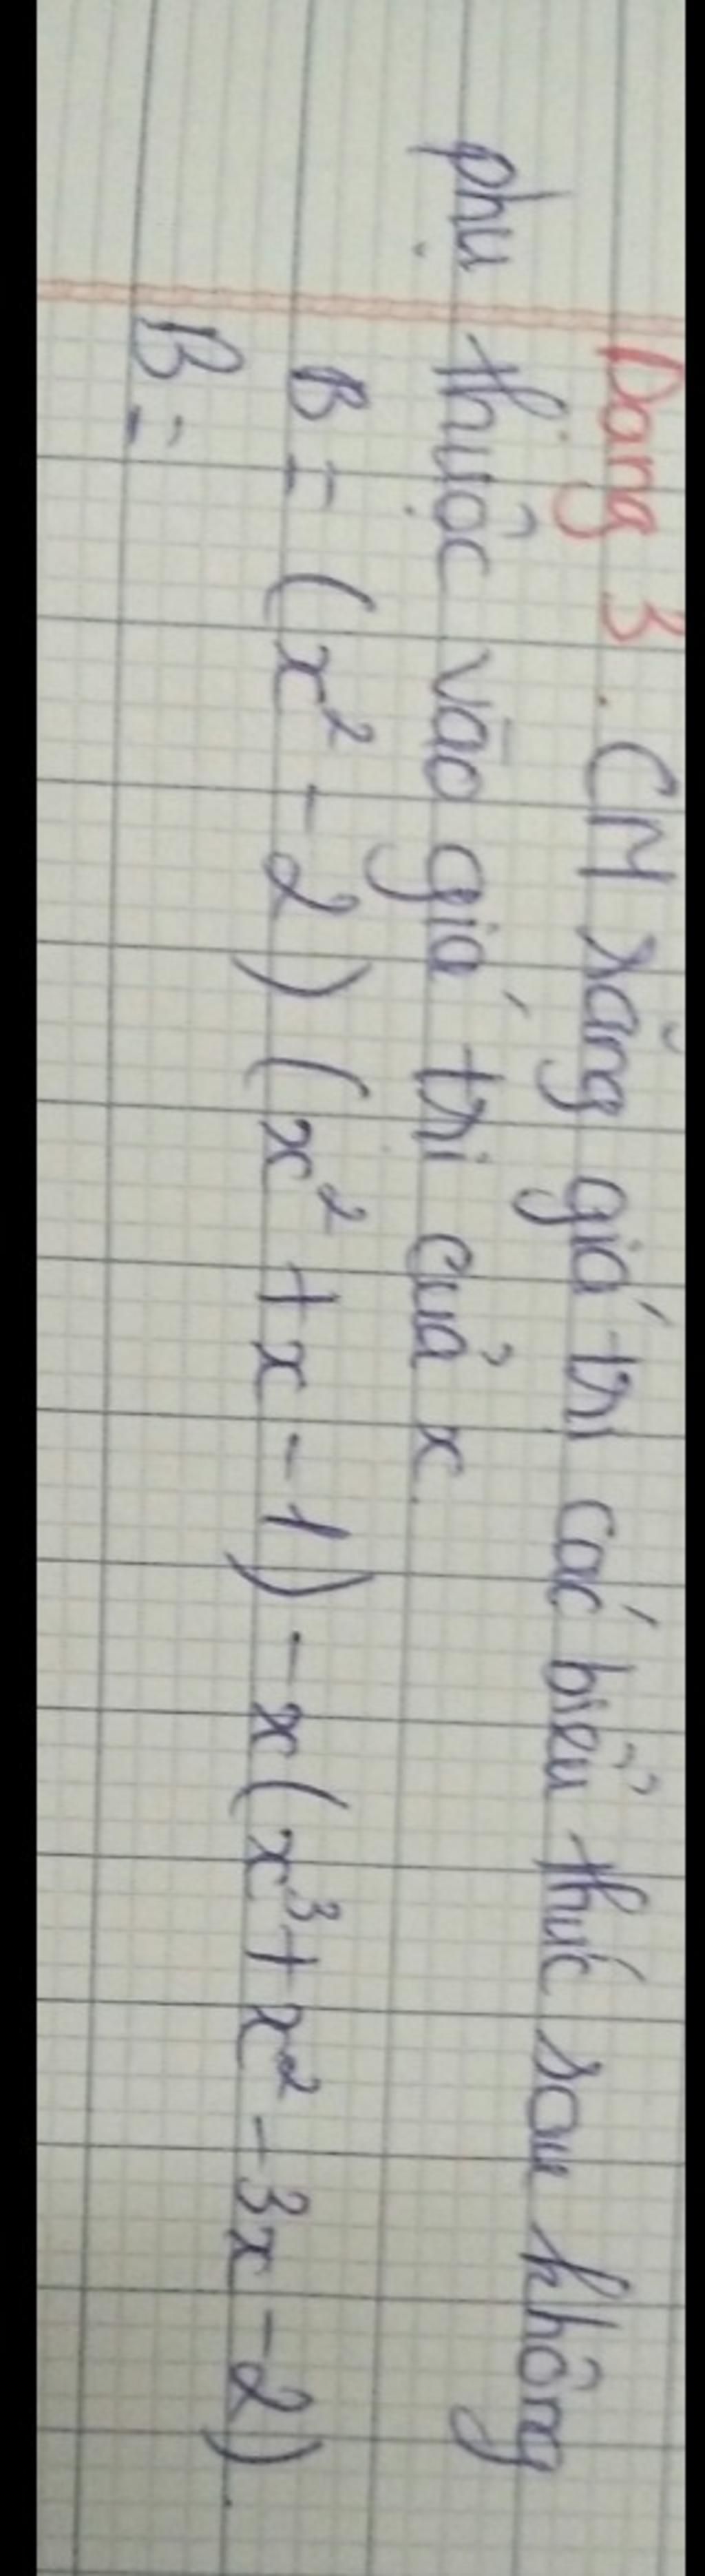 Dạng 3. CM rằng giá trị các biểu thức sau không
phụ thuộc vào giá trị của x.
B = (x² - 2) (x² + x - 1) - x (x³ + x² - 3x - 2).
B =